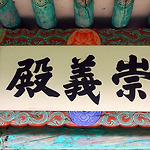 崇義殿